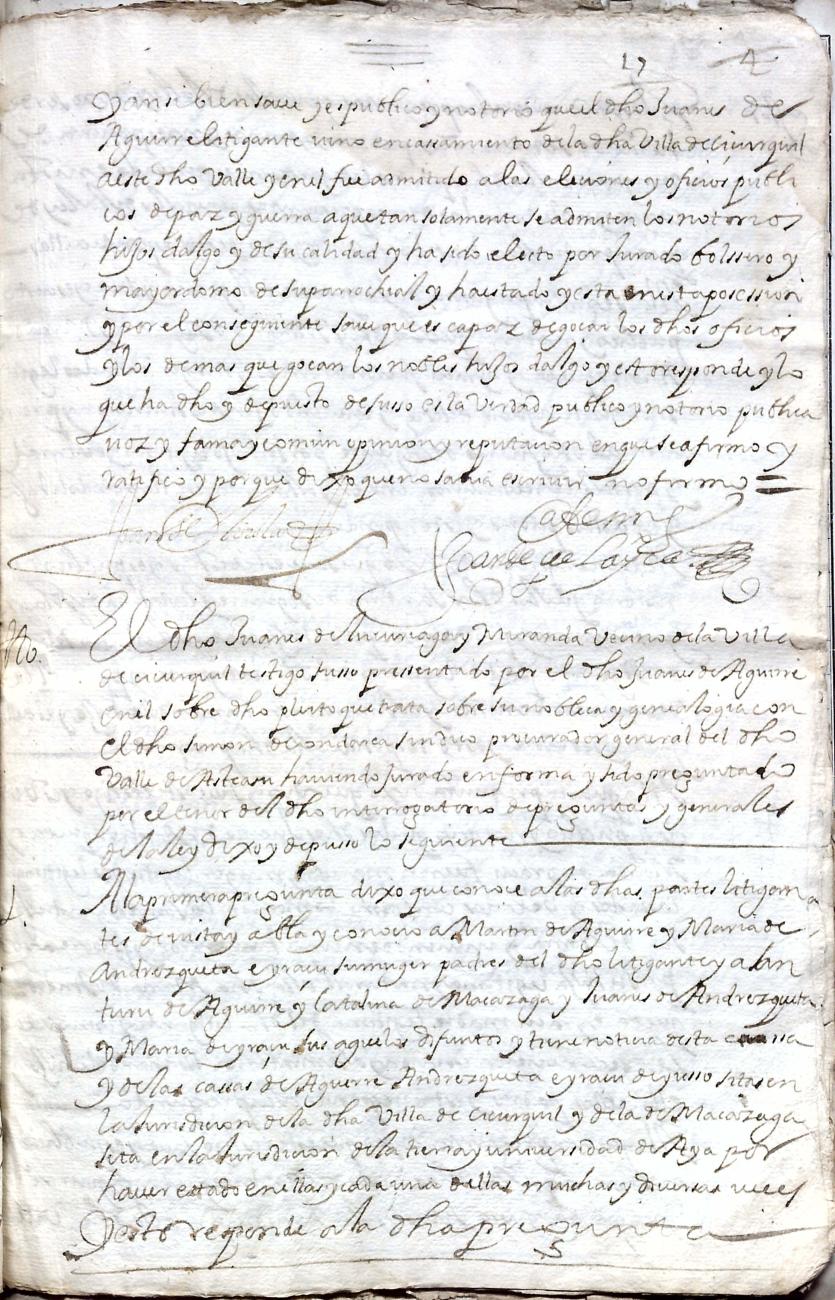 17 4
y ansi bien saue y es publico y notorio que el dho Juanes de
Aguirre litigante vino en cassamiento de la dha Villa de Cicurquil
a este dho Valle y en el fue admitido a las eleciones y oficios publi
cos de paz y guerra a que tan solamente se admiten los notorios
hijos dalgo y de su calidad y ha sido electo por Jurado bolssero y
mayordomo de su parrochial y ha estado y esta en esta possession
y por el consiguiente saue que es capaz de goçar los dhos oficios
y los demas que goçan los nobles hijos dalgo y esto responde y lo
que ha dho y depuesto de susso es la verdad publico y notorio publica
voz y fama y comun opinion y reputacion en que se afirmo y
ratifico y porque dixo que no sauia escriuir no firmo =
Ante mi
to.
El dho Juanes de y Miranda Vecino de la Villa
de cicurquil testigo susso pressentado por el dho Juanes de Aguirre
en el sobre dho pleito que trata sobre su nobleça y genealogia con
el dho Simon de sindico procurador general del dho
Valle de Asteasu hauiendo Jurado en forma y sido preguntado
por el tenor del dho interrogatorio de preguntas y generales
de la ley dixo y depusso lo seguiente
1. A la primera pregunta dixo que conoce a las dhas partes litigan
tes de vista y abla y conocio a Martin de Aguirre y Maria de
Andrezqueta eyraçu su muger padres del dho litigante y a San
turu de Aguirre y Catalina de Macazaga y Juanes de Andrezqueta
y Maria de yraçu sus aguelos difuntos y tiene noticia desta caussa
y de las cassas de Aguirre Andrezqueta e yraçu de yusso sitas en
la Jurisdicion de la dha Villa de cicurquil y de la de Macazaga
sita en la Jurisdicion de la tierra y universidad de Aya por
hauer estado en ellas y cada una dellas muchas y diversas veces
y esto responde a la dha pregunta